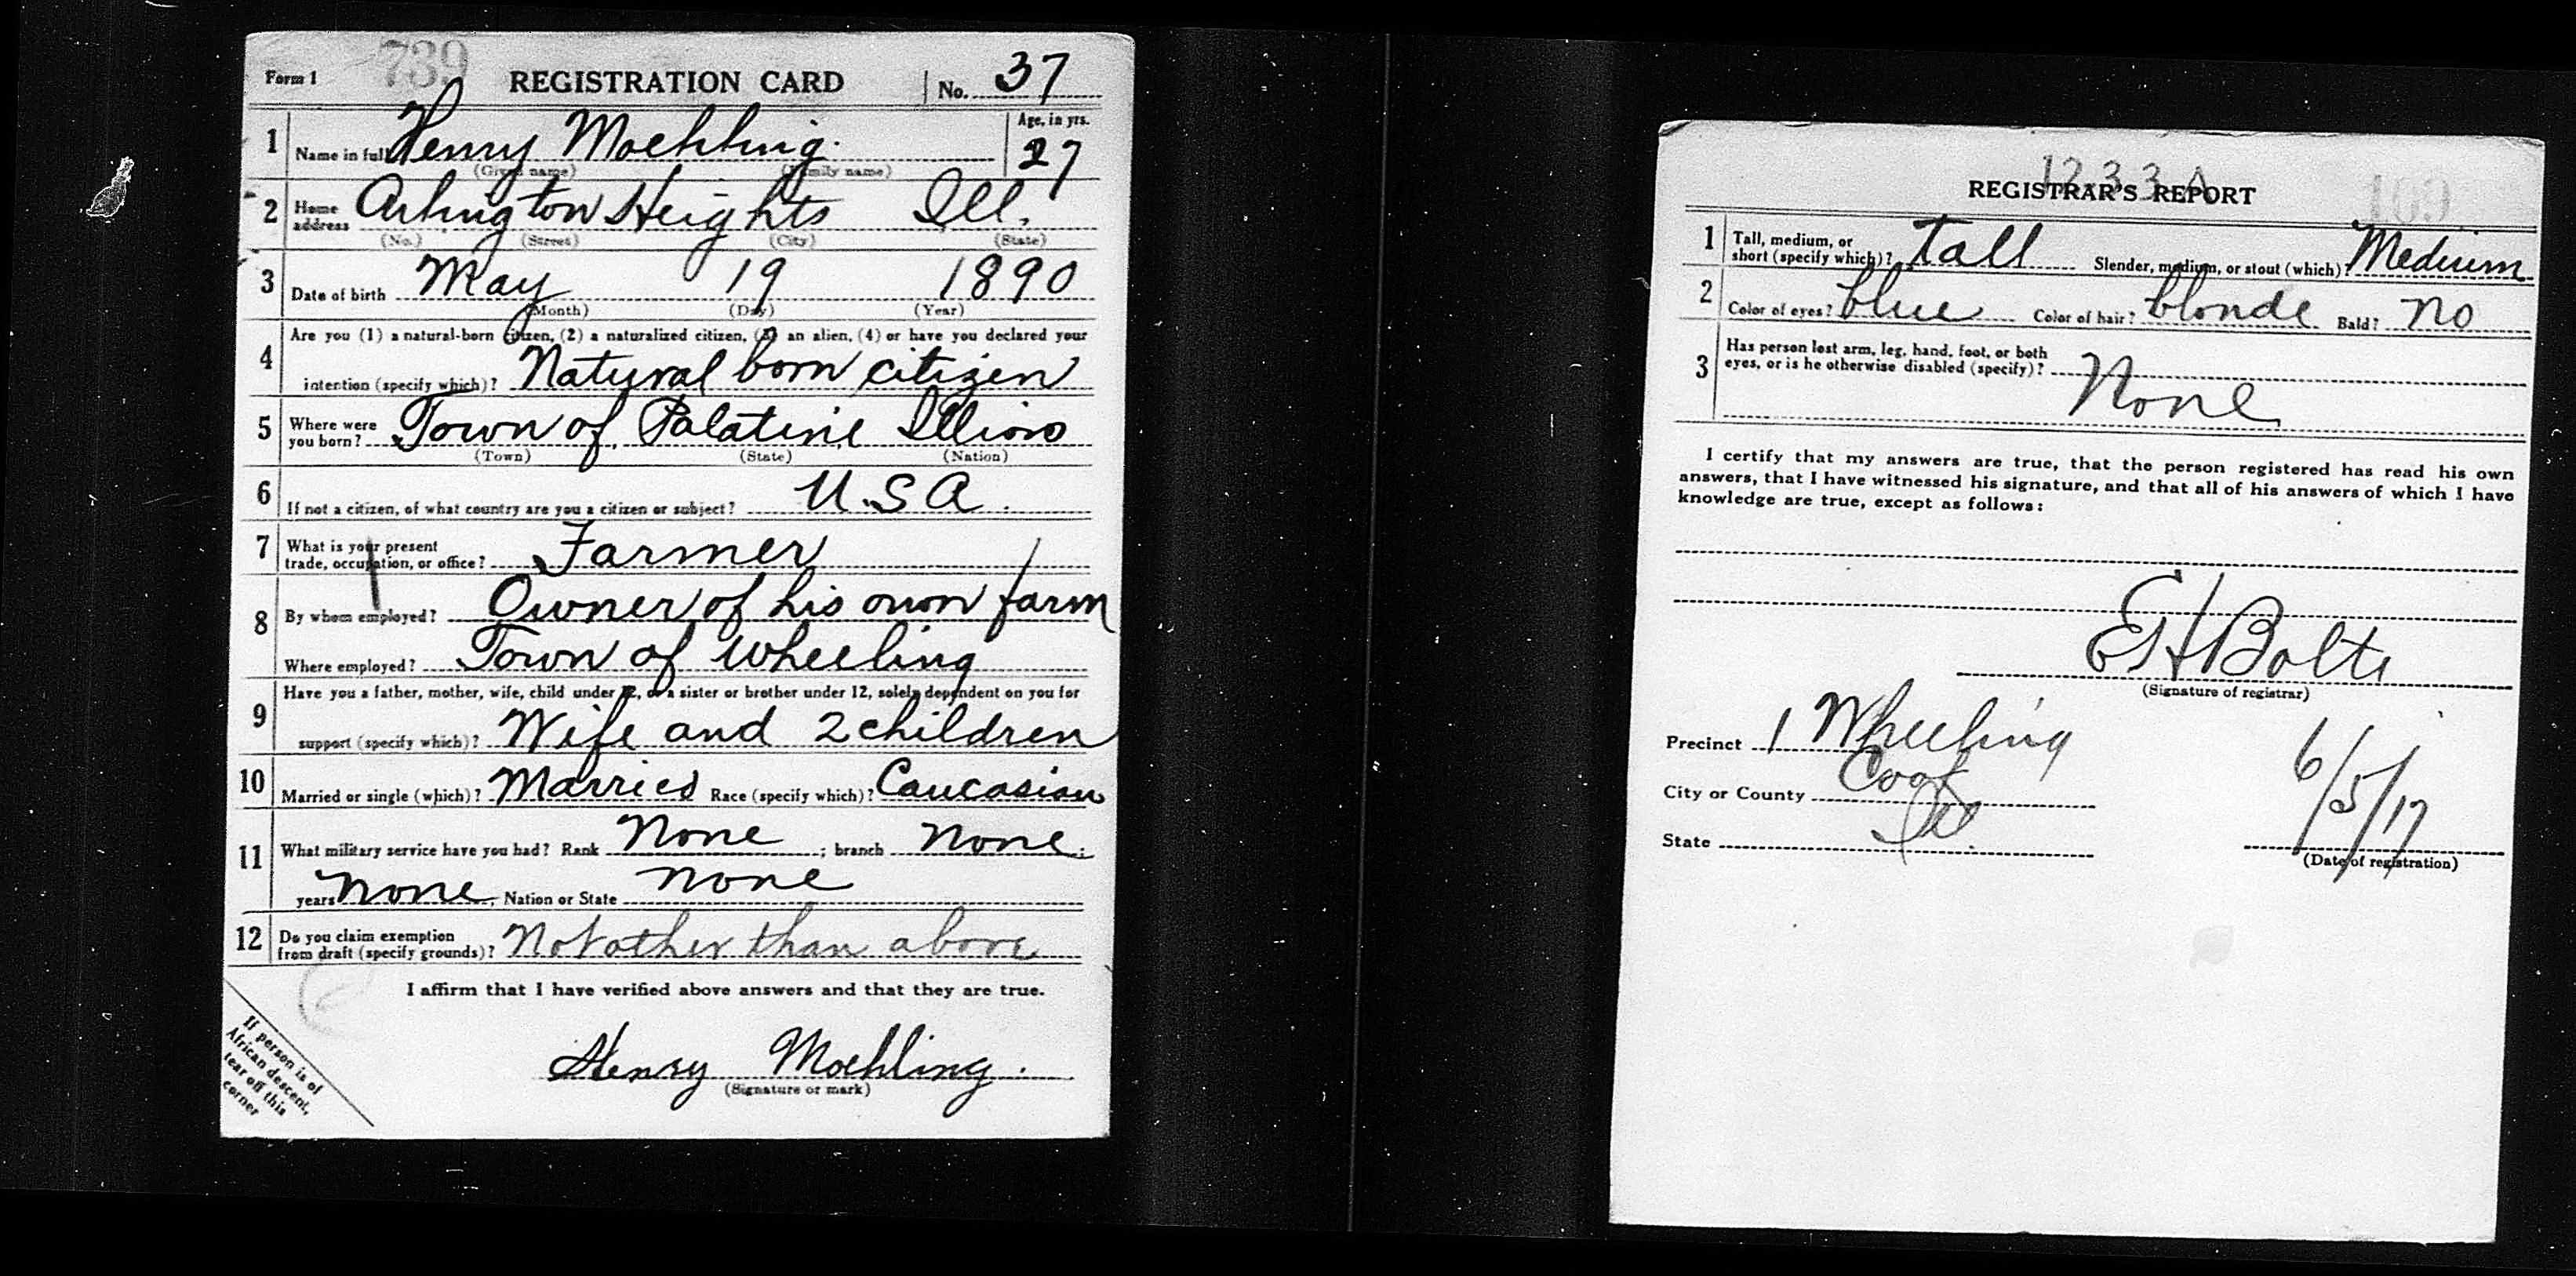 739
Form 1 REGISTRATION CARD No. 37
1 Name in full Henry Moehling. Age, in yrs. 27
(Given name) (Family name)
2 Home address Arlington Heights Ill.
(No.) (Street) (City) (State)
3 Date of birth May 19 1890
(Month) (Day) (Year)
4 Are you (1) a natural-born citizen, (2) a naturalized citizen, (3) an alien, (4) or have you declared your
intention (specify which)? Natural born citizen
5 Where were you born? Town of Palatine Illions
(Town) (State) (Nation)
6 If not a citizen, of what country are you a citizen or subject? U.S A.
7 What is your present
trade, occupation, or office? Farmer
8 By whom employed? Owner of his own farm
Where employed? Town of Wheeling
9 Have you a father, mother, wife, child under 12, or a sister or brother under 12, solely dependent on you for
support (specify which)? Wife and 2 children
10 Married or single (which)? Married Race (specify which)? Caucasian
11 What military service have you had? Rank None ; branch None;
years None, Nation or State None
12 Do you claim exemption
from draft (specify grounds)? Not other than above
I affirm that I have verified above answers and that they are true.
Henry Moehling.
(Signature or mark)
If person is of
African descent,
tear off this
corner
1233 A
REGISTRAR'S REPORT 109
1 Tall, medium, or
short (specify which)? tall Slender, medium, or stout (which)? Medium
2 Color of eyes? blue Color of hair? blonde Bald? no
3 Has person lost arm, leg, hand, foot, or both
eyes, or is he otherwise disabled (specify)?
None
I certify that my answers are true, that the person registered has read his own
answers, that I have witnessed his signature, and that all of his answers of which I have
knowledge are true, except as follows:
E H Bolte
(Signature of registrar)
Precinct 1 Wheeling
City or County Cook
State Ill.
6/5/17
(Date of registration)